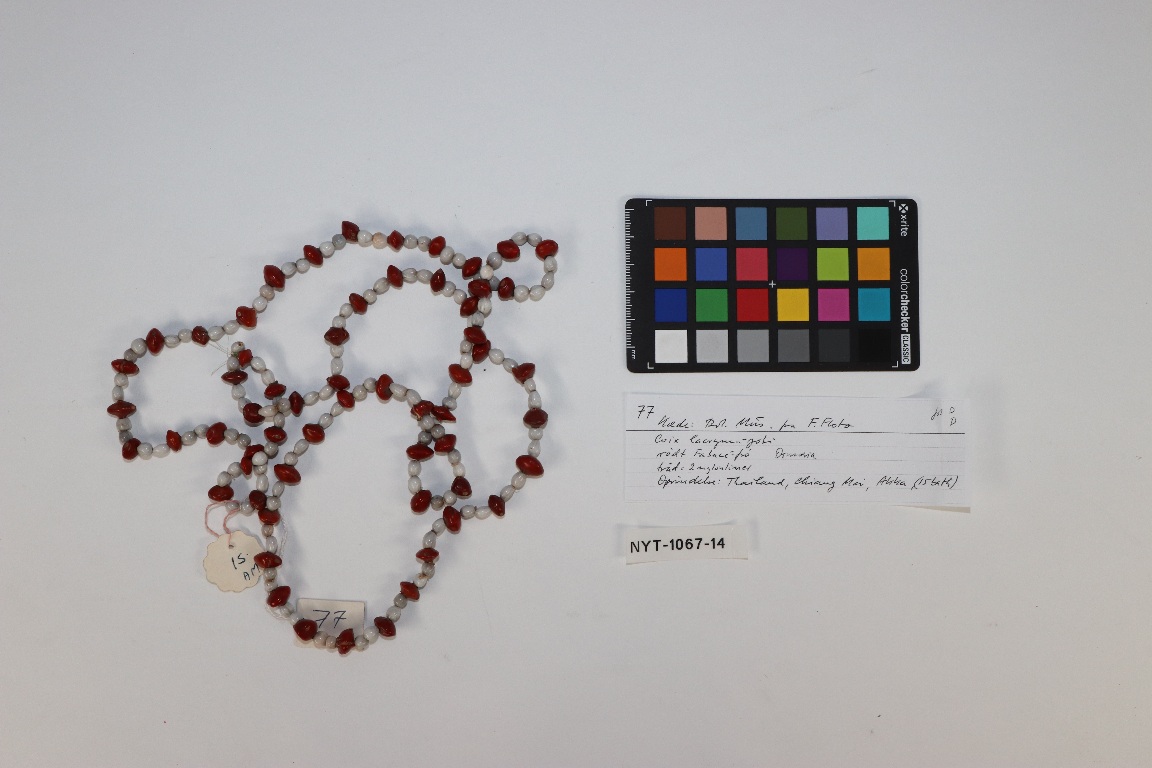 x·rite
colorchecker CLASSIC
mm
77
Kæde: Bot. Mus. fra F. Floto
Coix lacryma-jobi
rødt Fabacé-frø Ormosia
tråd: 2 nylonliner
Oprindelse: Thailand, Chiang Mai, Akha (15 bath)
NYT-1067-14
15
AM
77